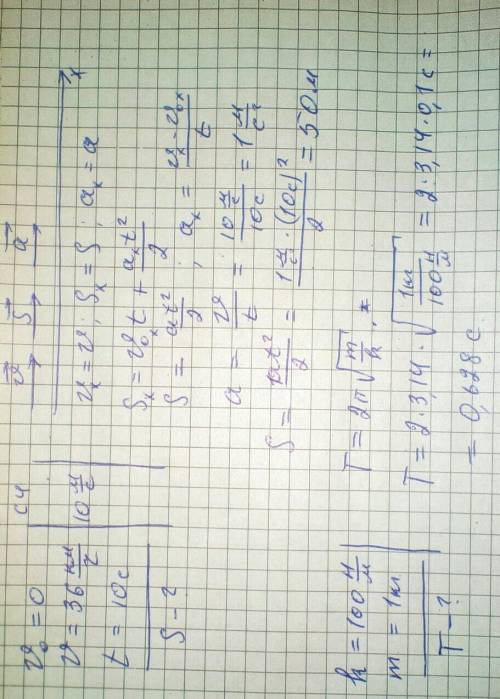 v₀ = 0
v = 36 км/ч
t = 10 с
S - ?
СИ
10 м/с
v⃗ S⃗ a⃗
x
vₓ = v; Sₓ = S; aₓ = a
Sₓ = v₀ₓt + aₓt²/2
S = at²/2; aₓ = (vₓ - v₀ₓ)/t
a = v/t = (10 м/с)/(10 с) = 1 м/с²
S = at²/2 = (1 м/с² · (10 с)²)/2 = 50 м
k = 100 Н/м
m = 1 кг
T - ?
T = 2π√(m/k)
T = 2·3,14·√(1 кг/(100 Н/м)) = 2·3,14·0,1 с =
= 0,628 с